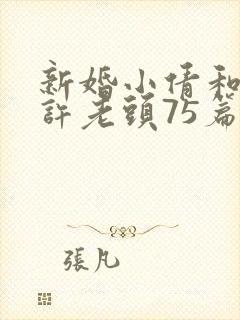 新婚小倩和
許老頭75篇
張凡